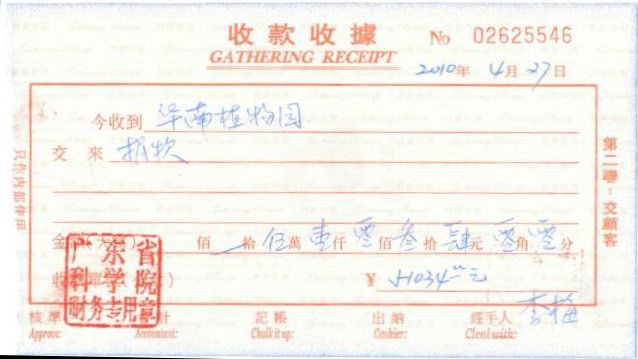 收款收據
GATHERING RECEIPT
No 02625546
2010年 4月 27日
今收到 华南植物园
交來 捐款
金額(大寫) 佰 拾 伍萬 壹仟 零佰 叁拾 肆元 零角 零分
¥ 51034.00元
广东省
科学院
财务专用章
核準 會計 記帳 出納 經手人 李梅
Approve: Accountant: Chalk it up: Cashier: Cleal with:
第二聯:交顧客
只作內部使用